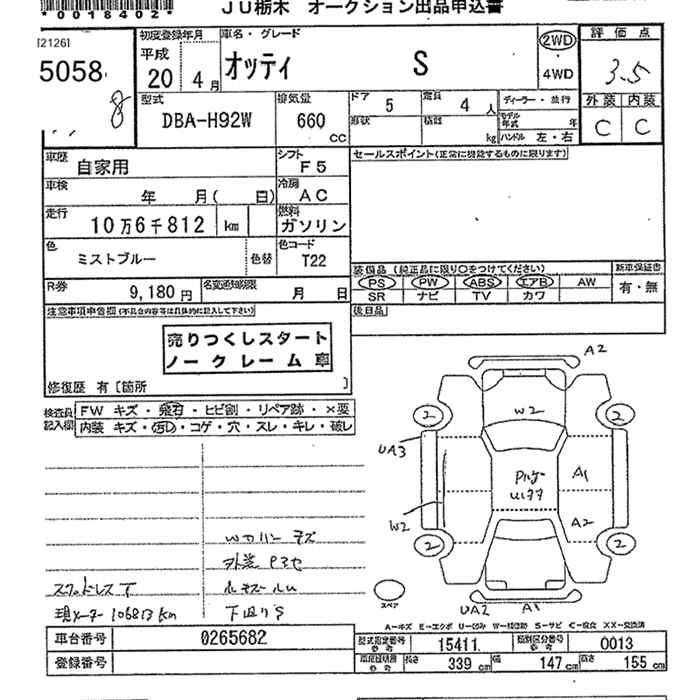 *00018402*
JU栃木 オークション出品申込書
21261
5058
8
初度登録年月
平成
20年 4月
車名・グレード
オッティ S
2WD
4WD
評価点
3.5
外装 内装
C C
型式
DBA-H92W
排気量
660 CC
ドア 5
定員 4人
形状
積載 kg
ディーラー・並行
モデル年式 年
ハンドル 左・右
車歴 自家用
シフト F5
セールスポイント(正常に機能するものに限ります)
車検 年 月( 日)
冷房 AC
走行 10万6千812 km
燃料 ガソリン
色 ミストブルー 色替
色コード T22
R券 9,180円
名変通知期限 月 日
装備品 (純正品に限り○をつけてください)
新車保証書
PS PW ABS エアB AW
有・無
SR ナビ TV カワ
後日品
注意事項申告欄(不具合内容等は具体的に記入して下さい)
売りつくしスタート
ノークレーム車
修復歴 有〔箇所 〕
検査員記入欄
FW キズ・飛石・ヒビ割・リペア跡・×要
内装 キズ・汚レ・コゲ・穴・スレ・キレ・破レ
A2
W2
2 2
UA3
A1
W2
A2
2 2
スペア
UA2 A1
外装
現メーター 106813 km
下回りS
A-キズ E-エクボ U-凹み W-補修跡 S-サビ C-腐食 XX-交換済
車台番号 0265682
登録番号
型式指定番号 参考 15411
類別区分番号 参考 0013
車庫証明書 参考 長さ 339 cm 幅 147 cm 高さ 155 cm